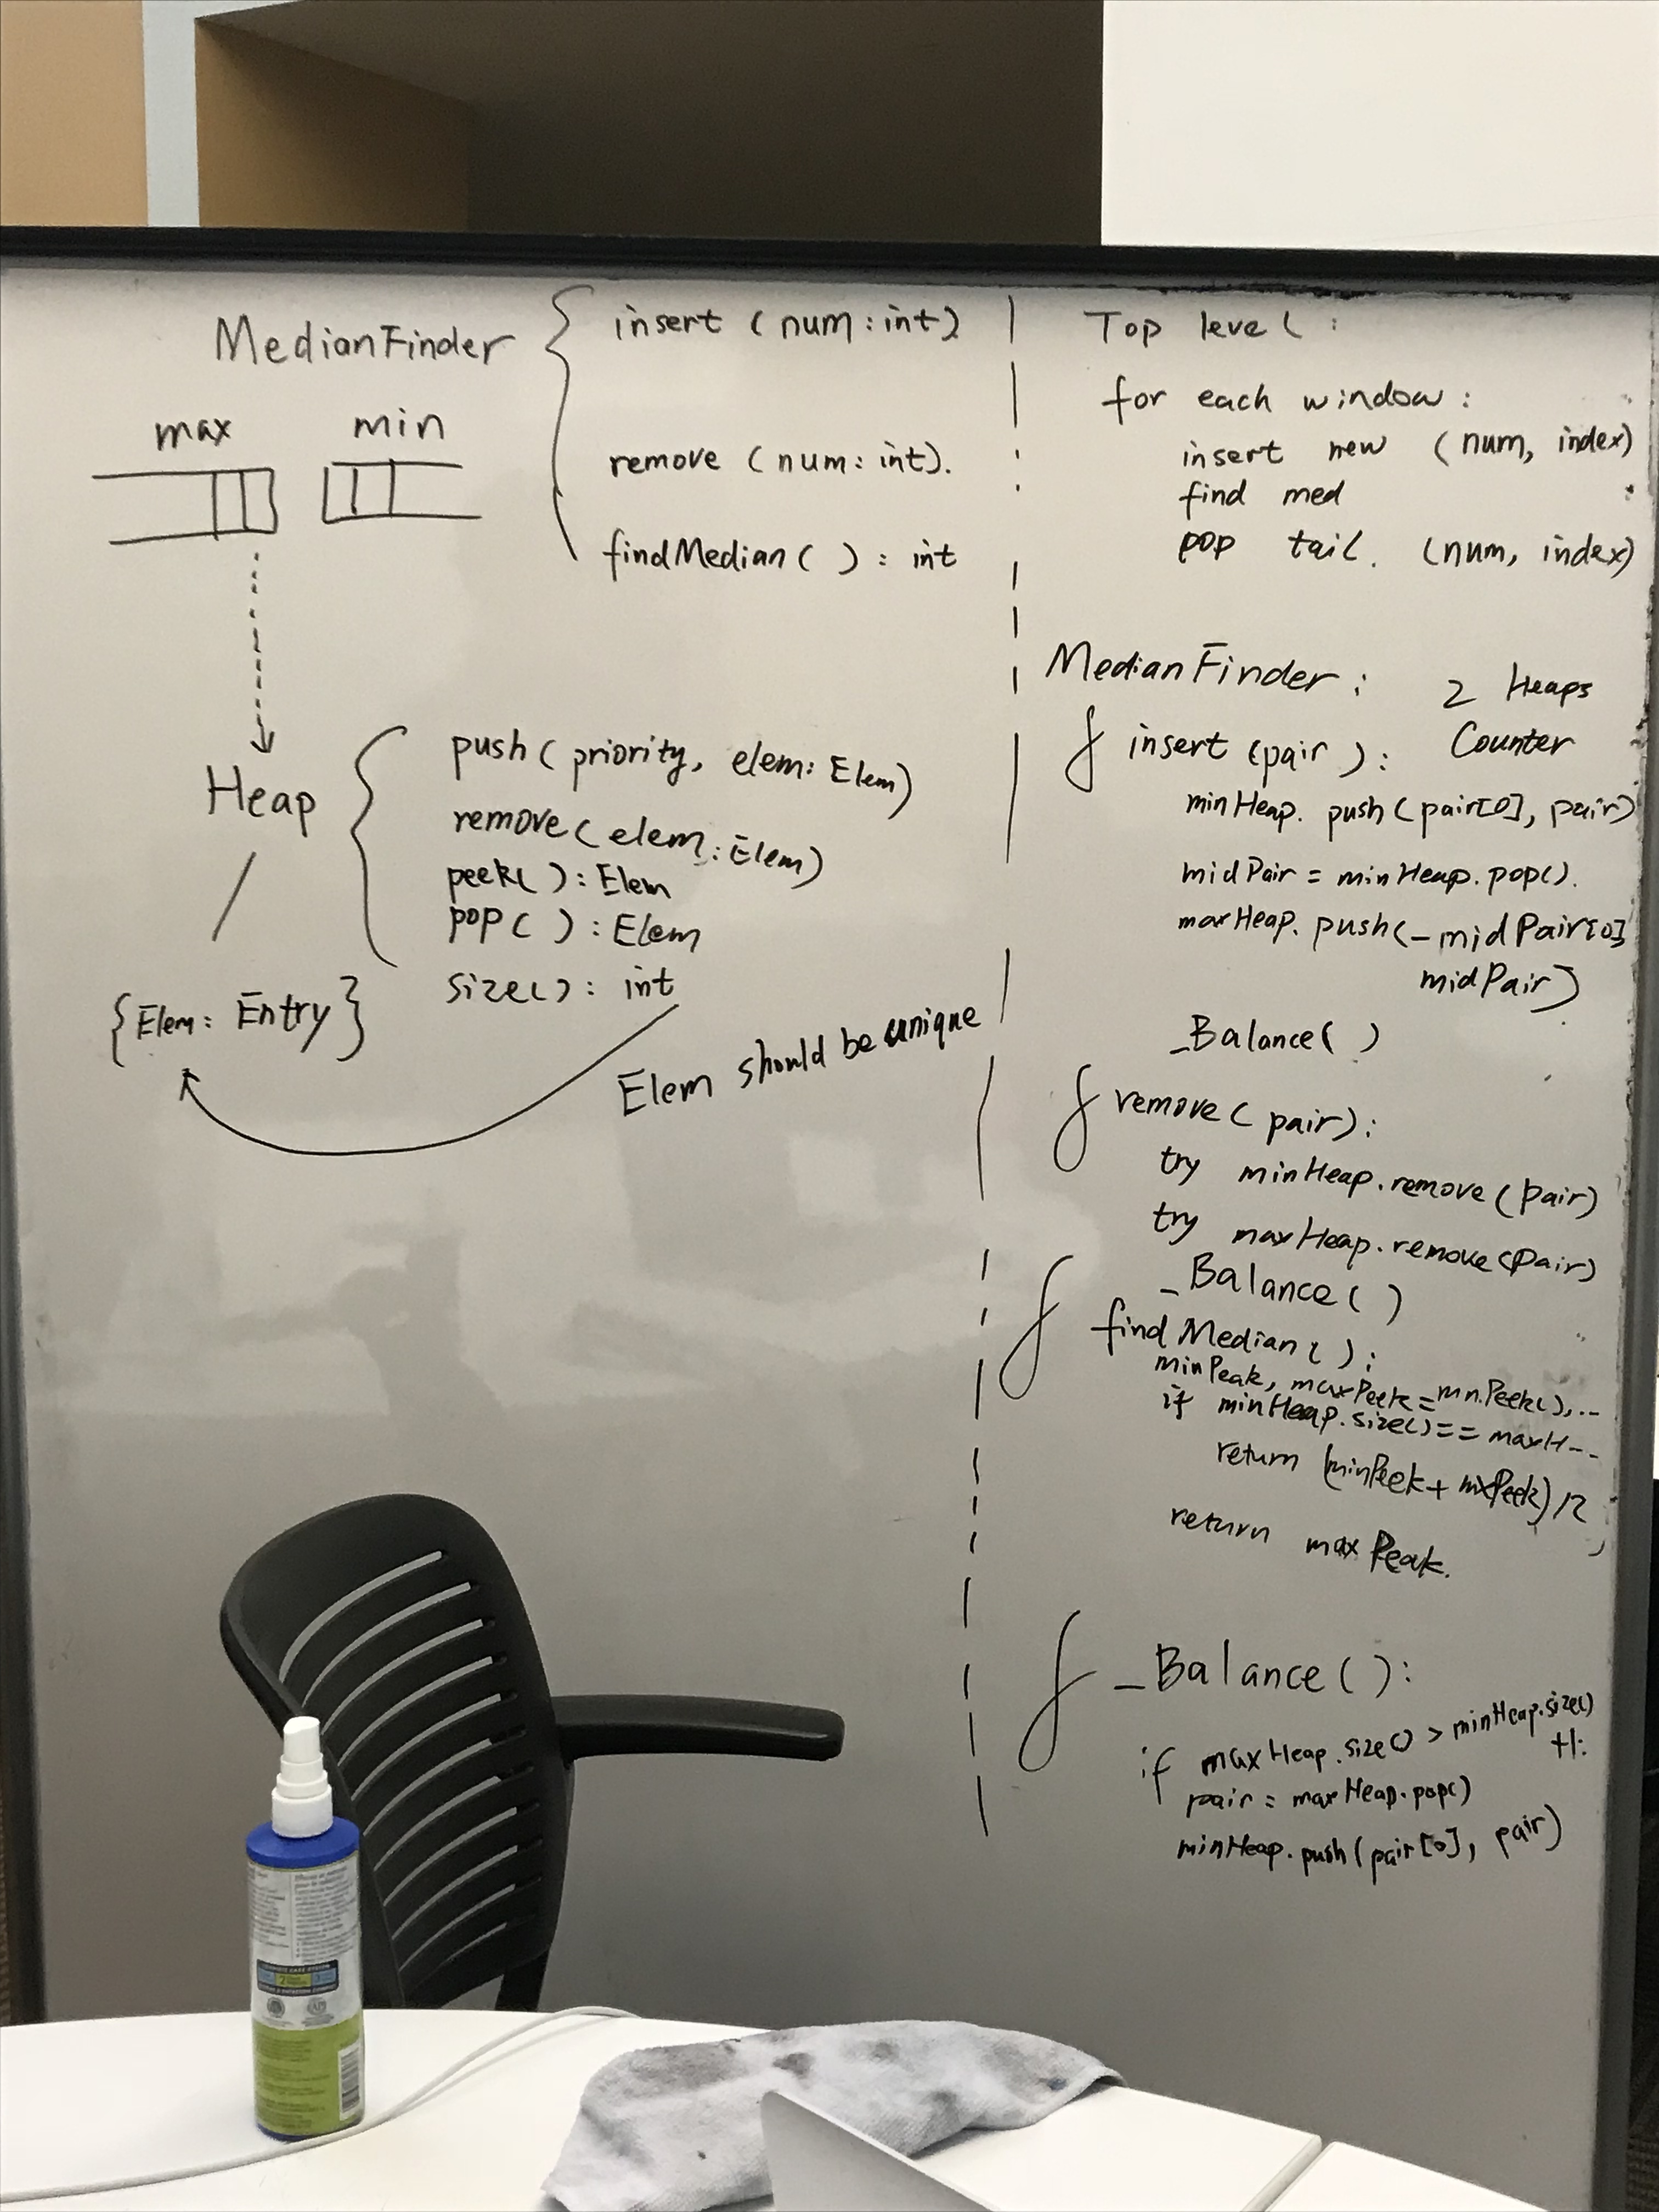 MedianFinder
insert (num: int)
remove (num: int).
findMedian( ): int
max
min
Heap
push( priority, elem: Elem)
remove( elem: Elem)
peek( ): Elem
pop( ): Elem
size( ): int
{Elem: Entry}
Elem should be unique
Top level:
for each window:
insert new (num, index)
find med
pop tail. (num, index)
MedianFinder: 2 Heaps
f insert (pair ): Counter
minHeap. push(pair[0], pair)
midPair = minHeap.pop().
maxHeap. push(-midPair[0]
midPair)
_Balance( )
f remove( pair):
try minHeap.remove(pair)
try maxHeap.remove(pair)
_Balance( )
f findMedian( ):
minPeak, maxPeek=mn.Peek(),...
if minHeap.size()== maxH--
return (minPeek+ mxPeek)/2
return maxPeak.
f _Balance( ):
if maxHeap.size() > minHeap.size()
+1:
pair = maxHeap.pop()
minHeap.push(pair[0], pair)